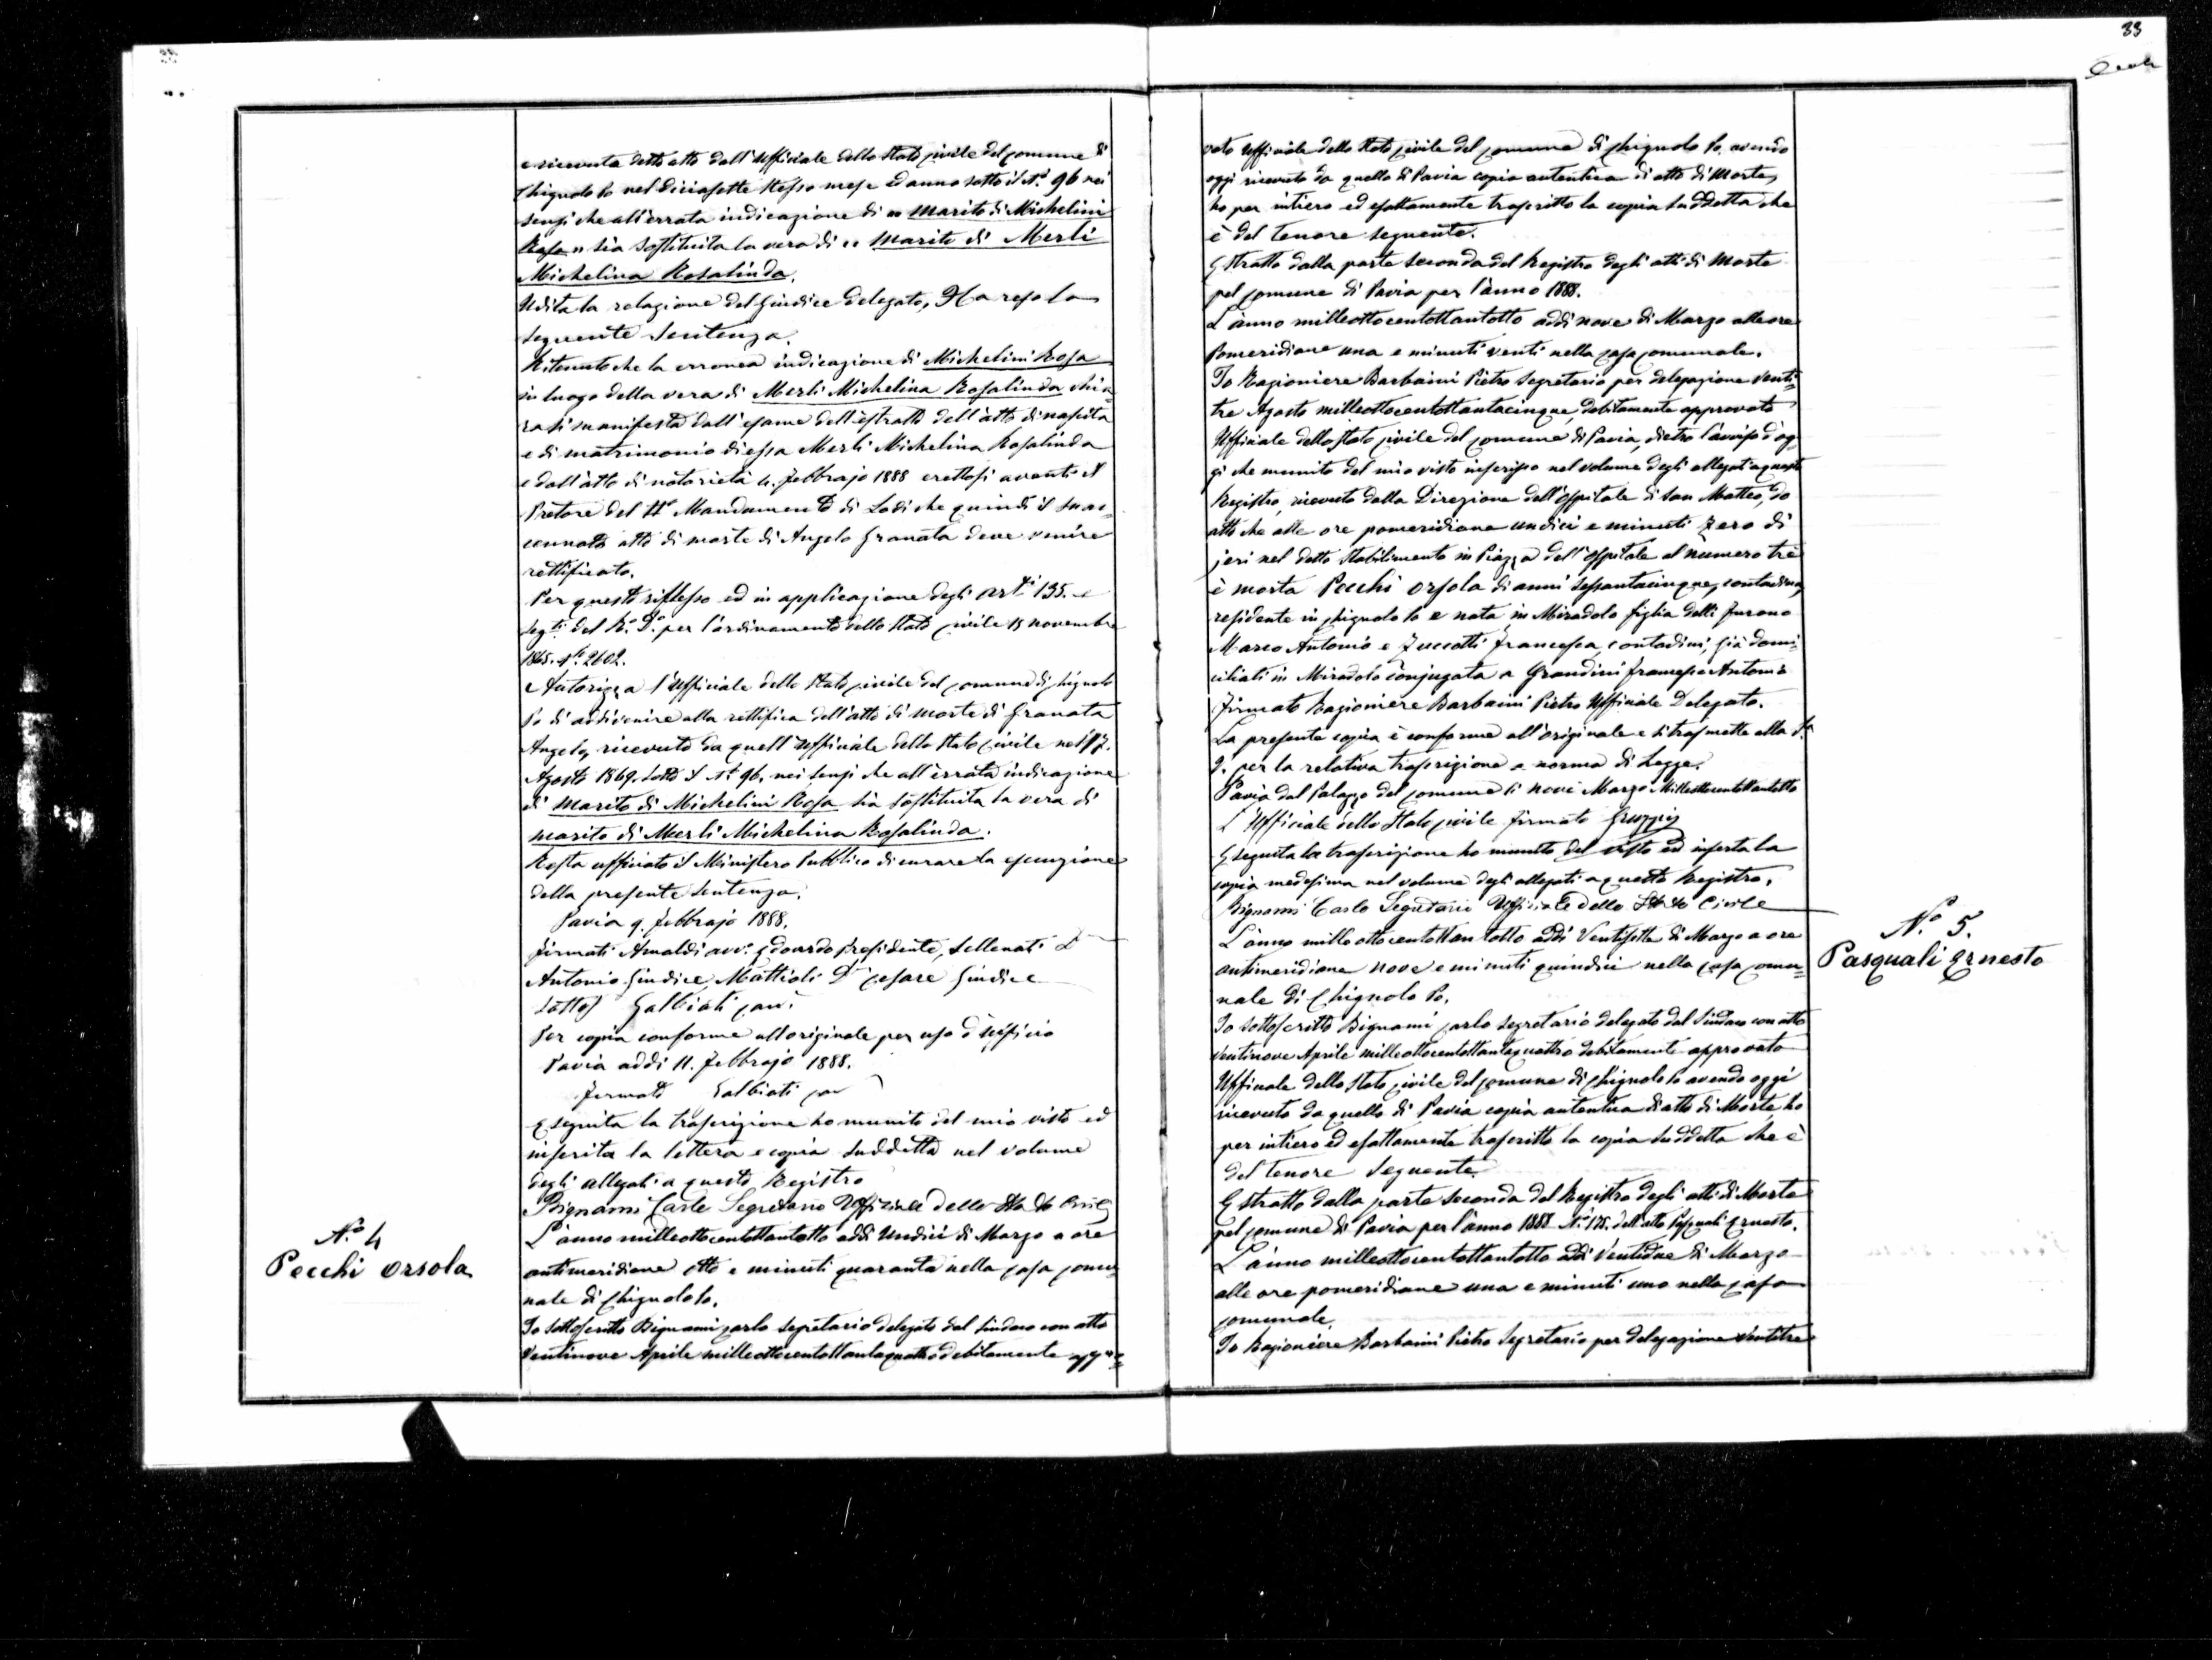 33
e ricevuto detto atto dall'Uffiziale dello Stato Civile del Comune di
Chignolo Po nel diciasette stesso mese ed anno sotto il N.º 96 nei
sensi che all'errata indicazione di " marito di Michelini
Rosa " sia sostituita la vera di " marito di Merli
Michelina Rosalinda.
Udita la relazione del Giudice delegato, Ha reso la
seguente Sentenza.
Ritenuto che la erronea indicazione di Michelini Rosa
in luogo della vera di Merli Michelina Rosalinda chia=
ra si manifesta dall'esame dell'estratto dell'atto di nascita
e di matrimonio di essa Merli Michelina Rosalinda
e dall'atto di notorietà 4. Febbrajo 1888 erettosi avanti il
Pretore del IIº Mandamento di Lodi che quindi il suac=
cennato atto di morte di Angelo Granata deve venire
rettificato.
Per questo riflesso ed in applicazione degli Art.i 135. e
seg.ti del R.º D.º per l'ordinamento dello Stato Civile 15 novembre
1865. N.º 2602.
Autorizza l'Uffiziale dello Stato Civile del Comune di Chignolo
Po di addivenire alla rettifica dell'atto di morte di Granata
Angelo, ricevuto da quell'Uffiziale dello Stato Civile nel 17.
Agosto 1869. sotto il N.º 96, nei sensi che all'errata indicazione
di marito di Michelini Rosa sia sostituita la vera di
marito di Merli Michelina Rosalinda.
Resta uffiziato il Ministero Pubblico di curare la esecuzione
della presente Sentenza.
Pavia 9. Febbrajo 1888.
firmati Arnaldi avv. Edoardo presidente, Sellenati D.
Antonio Giudice, Mattioli D.r Cesare Giudice
Sottos Galbiati can.
Per copia conforme all'originale per uso d'ufficio
Pavia addì 11. Febbrajo 1888.
firmato Galbiati can
Eseguita la trascrizione ho munito del mio visto ed
inserita la lettera e copia suddetta nel volume
degli allegati a questo Registro
Bignami Carlo Segretario Uffiziale dello Stato Civile
Nº 4
Pecchi Orsola
L'anno milleottocentottantotto addì Undici di Marzo a ore
antimeridiane otto e minuti quaranta nella Casa Comu=
nale di Chignolo Po.
Io sottoscritto Bignami Carlo segretario delegato dal Sindaco con atto
Ventinove Aprile milleottocentottantaquattro debitamente appro=
vato Uffiziale dello Stato Civile del Comune di Chignolo Po, avendo
oggi ricevuto da quello di Pavia copia autentica di atto di Morte,
ho per intiero ed esattamente trascritto la copia suddetta che
è del tenore seguente.
Estratto dalla parte seconda del Registro degli atti di Morte
pel Comune di Pavia per l'anno 1888.
L'anno milleottocentottantotto addì nove di Marzo alle ore
Pomeridiane una e minuti venti nella Casa Comunale.
Io Ragioniere Barbaini Pietro Segretario per delegazione Venti=
tre Agosto milleottocentottantacinque, debitamente approvato
Uffiziale dello Stato Civile del Comune di Pavia, dietro l'avviso d'og=
gi che munito del mio visto inserisco nel volume degli allegati a questo
Registro, ricevuto dalla Direzione dell'Ospitale di San Matteo, do
atto che alle ore pomeridiane undici e minuti zero di
jeri nel detto Stabilimento in Piazza dell'Ospitale al numero tre
è morta Pecchi Orsola di anni sessantacinque, contadina,
residente in Chignolo Po e nata in Miradolo figlia delli furono
Marco Antonio e Zuccotti Francesca, contadini, già domi=
ciliati in Miradolo conjugata a Grandini Francesco Antonio
Firmato Ragioniere Barbaini Pietro Uffiziale Delegato.
La presente copia è conforme all'originale e si trasmette alla S.a
V. per la relativa trascrizione a norma di Legge.
Pavia dal Palazzo del Comune li nove Marzo Milleottocentottantotto
L'Uffiziale dello Stato Civile firmato
Eseguita la trascrizione ho munito del visto ed inserta la
copia medesima nel volume degli allegati a questo Registro.
Bignami Carlo Segretario Uffiziale dello Stato Civile
Nº 5.
Pasquali Ernesto
L'anno milleottocentottantotto addì Ventisette di Marzo a ore
antimeridiane nove e minuti quindici nella Casa Comu=
nale di Chignolo Po.
Io sottoscritto Bignami Carlo segretario delegato dal Sindaco con atto
Ventinove Aprile milleottocentottantaquattro debitamente approvato
Uffiziale dello Stato Civile del Comune di Chignolo Po avendo oggi
ricevuto da quello di Pavia copia autentica di atto di Morte, ho
per intiero ed esattamente trascritto la copia suddetta che è
del tenore seguente
Estratto dalla parte seconda del Registro degli atti di Morte
pel Comune di Pavia per l'anno 1888 Nº 175. dell'atto Pasquali Ernesto.
L'anno milleottocentottantotto addì Ventidue di Marzo
alle ore pomeridiane una e minuti uno nella Casa
Comunale.
Io Ragioniere Barbaini Pietro Segretario per delegazione Ventitre